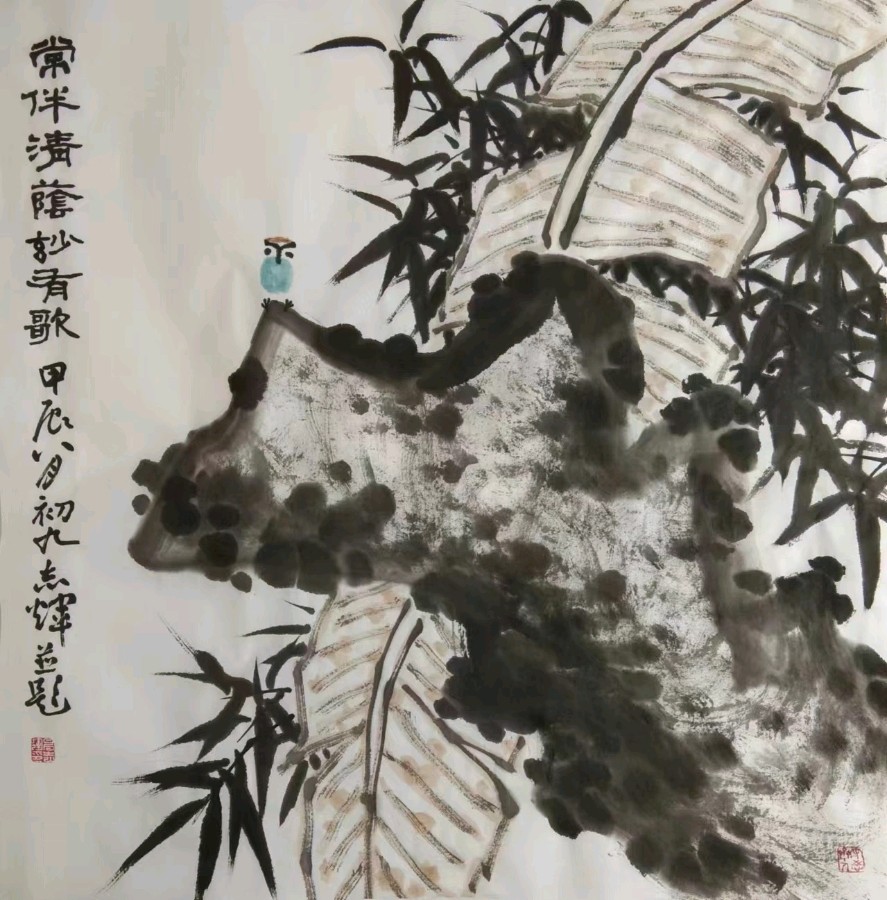 常伴清蔭妙有歌甲辰八月初九志輝並題